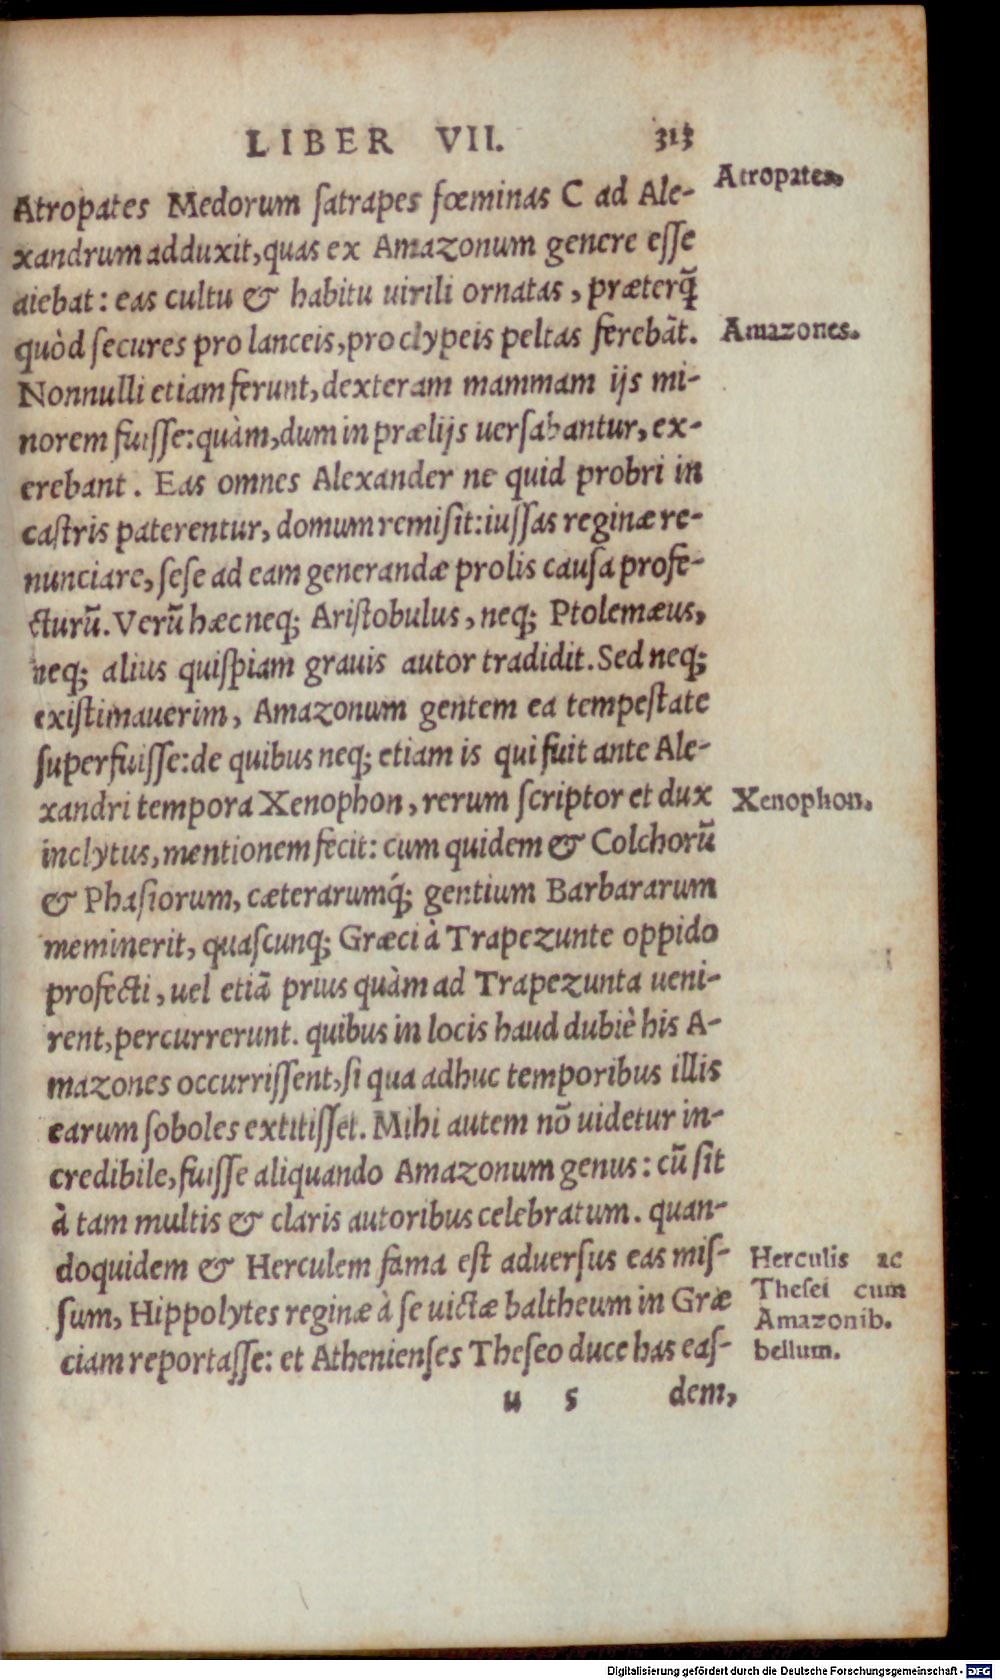 LIBER VII. 313
Atropates Medorum ſatrapes fœminas C ad Ale-
xandrum adduxit, quas ex Amazonum genere eſſe
aiebat: eas cultu & habitu uirili ornatas, præterq̃
quòd ſecures pro lanceis, pro clypeis peltas ferebãt.
Nonnulli etiam ferunt, dexteram mammam ijs mi-
norem fuiſſe: quàm, dum in prælijs uerſabantur, ex-
erebant. Eas omnes Alexander ne quid probri in
caſtris paterentur, domum remiſit: iuſſas reginæ re-
nunciare, ſeſe ad eam generandæ prolis cauſa profe-
cturũ. Verũ hæc neq; Ariſtobulus, neq; Ptolemæus,
neq; alius quiſpiam grauis autor tradidit. Sed neq;
exiſtimauerim, Amazonum gentem ea tempeſtate
ſuperfuiſſe: de quibus neq; etiam is qui fuit ante Ale-
xandri tempora Xenophon, rerum ſcriptor et dux
inclytus, mentionem fecit: cum quidem & Colchorũ
& Phaſiorum, cæterarumq́; gentium Barbararum
meminerit, quaſcunq; Græci à Trapezunte oppido
profecti, uel etiã prius quàm ad Trapezunta ueni-
rent, percurrerunt. quibus in locis haud dubiè his A-
mazones occurriſſent, ſi qua adhuc temporibus illis
earum ſoboles extitiſſet. Mihi autem nõ uidetur in-
credibile, fuiſſe aliquando Amazonum genus: cũ ſit
à tam multis & claris autoribus celebratum. quan-
doquidem & Herculem fama eſt aduerſus eas miſ-
ſum, Hippolytes reginæ à ſe uictæ baltheum in Græ
ciam reportaſſe: et Athenienſes Theſeo duce has eaſ-
u 5 dem,
Atropates.
Amazones.
Xenophon.
Herculis ac
Theſei cum
Amazonib.
bellum.
Digitalisierung gefördert durch die Deutsche Forschungsgemeinschaft - DFG